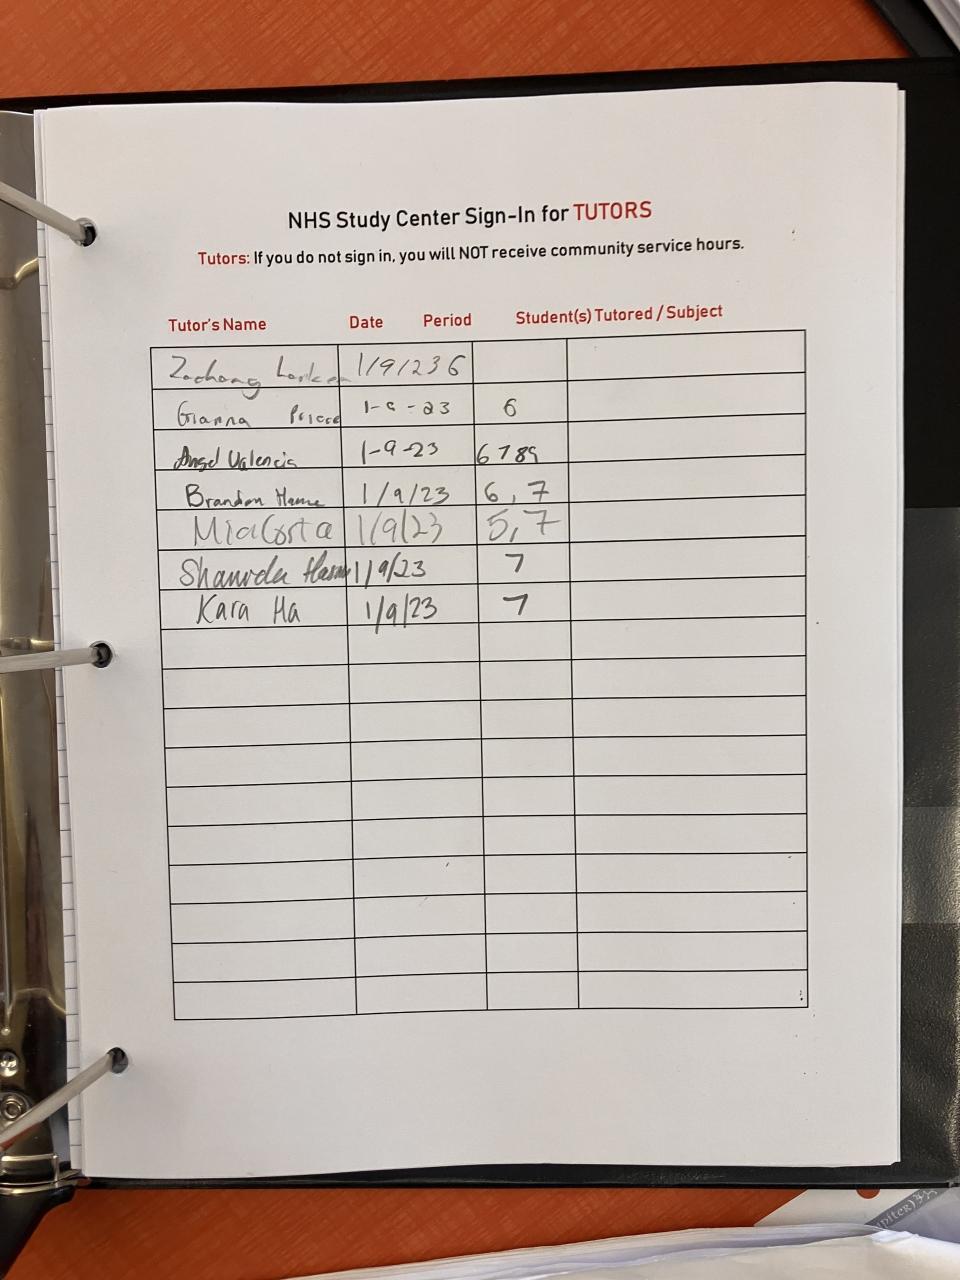 NHS Study Center Sign-In for TUTORS
Tutors: If you do not sign in, you will NOT receive community service hours.
Tutor's Name Date Period Student(s) Tutored / Subject
1/9/23 6
Gianna 1-9-23 6
Angel Valencia 1-9-23 6 7 8 9
Brandon 1/9/23 6, 7
Mia Corta 1/9/23 5, 7
1/9/23 7
Kara Ha 1/9/23 7